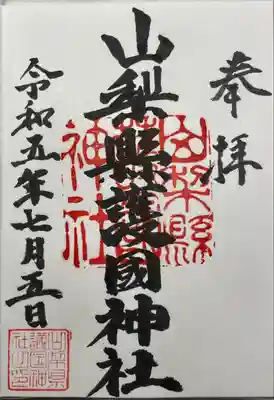 奉拝
山梨縣護國神社
令和五年七月五日
山梨縣
護國
神社
山梨県
護国神
社之印